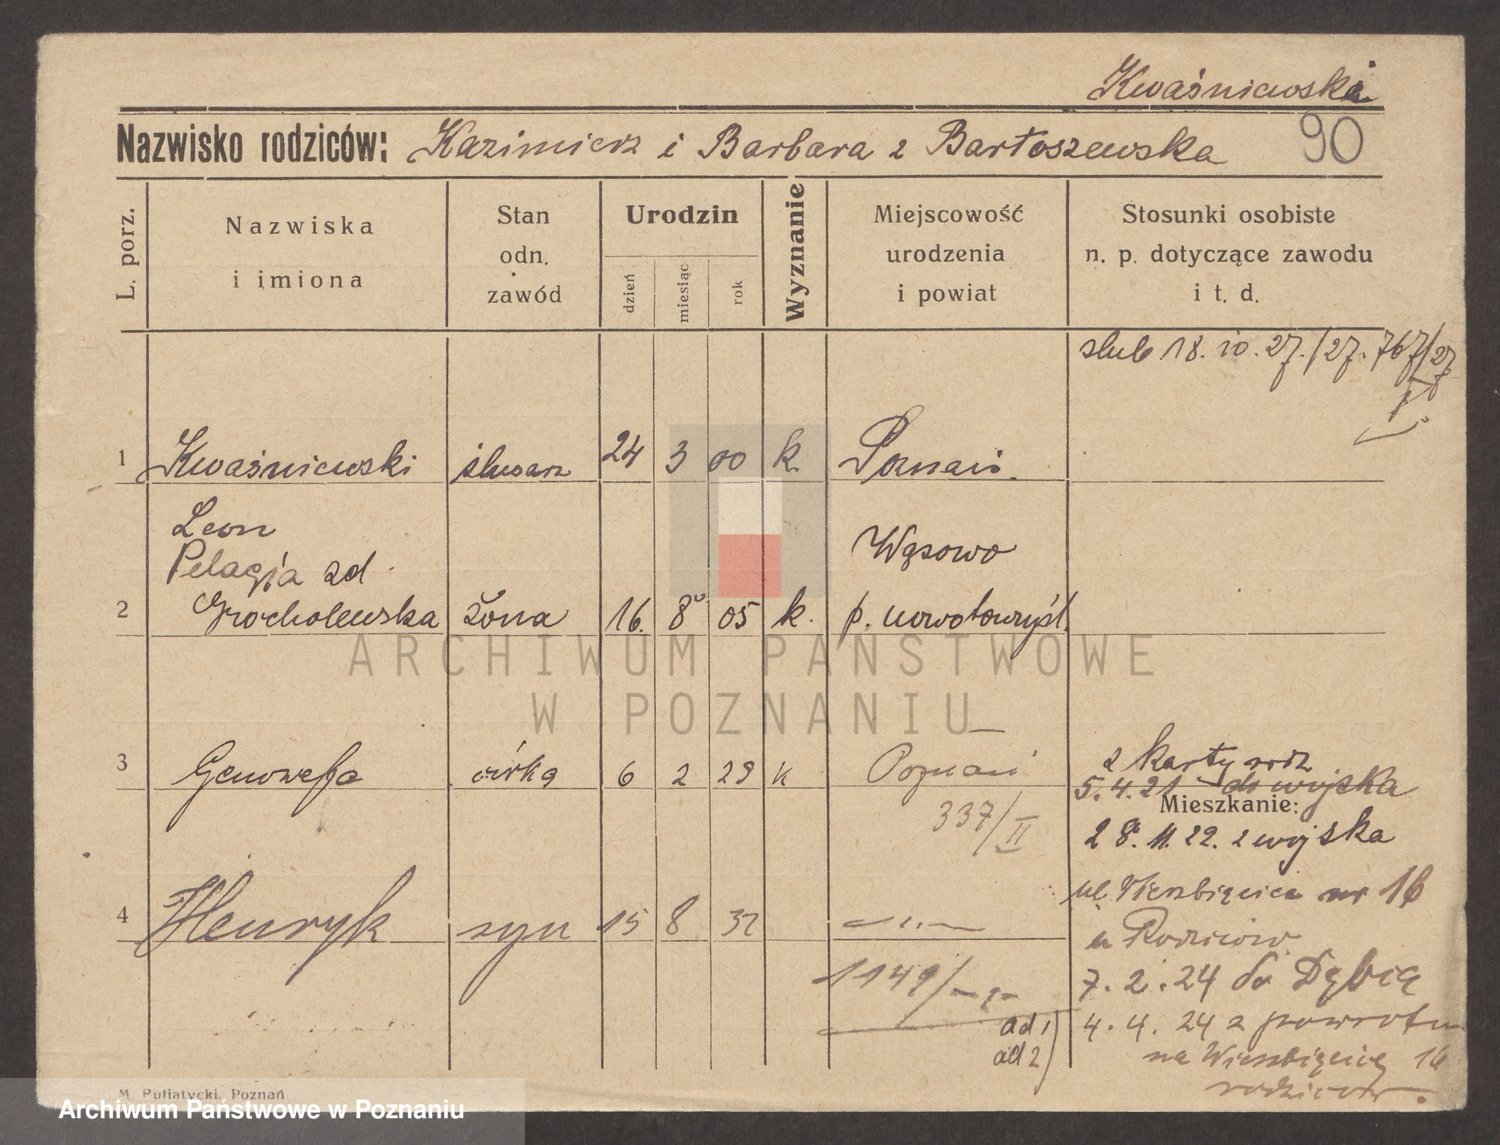 Kwaśniewski
Nazwisko rodziców: Kazimierz i Barbara z Bartoszewska
90
L. porz.
Nazwiska
i imiona
Stan
odn.
zawód
Urodzin
dzień
miesiąc
rok
Wyznanie
Miejscowość
urodzenia
i powiat
Stosunki osobiste
n. p. dotyczące zawodu
i t. d.
ślub 18. 10. 27./27. 767/27
1 Kwaśniewski ślusarz 24 3 00 k. Poznań.
Leon
Pelagja zd.
Wąsowo
2 Grocholewska żona 16. 8 05 k. p. nowotomyśl.
ARCHIWUM PAŃSTWOWE
W POZNANIU
3 Genowefa córka 6 2 29 k Poznań
z karty rodz
5. 4. 21 do wojska
Mieszkanie:
337/II
28. 11. 22. z wojska
ul Wierzbięcice nr 16
4 Henryk syn 15 8 32 —"—
u Rodziców
1149/
7. 2. 24 do Dębią
ad 1)
4. 4. 24 z powrotem
ad 2)
na Wierzbięcice 16
rodziców.
M. Putiatycki, Poznań
Archiwum Państwowe w Poznaniu